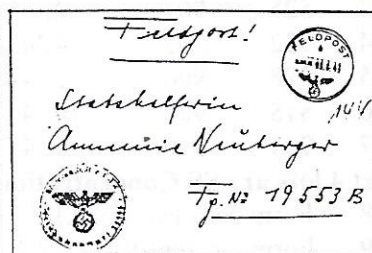 Feldpost!
FELDPOST
14 V
Stabshelferin
Annemarie Neuberger
Fp. Nr 19553 B